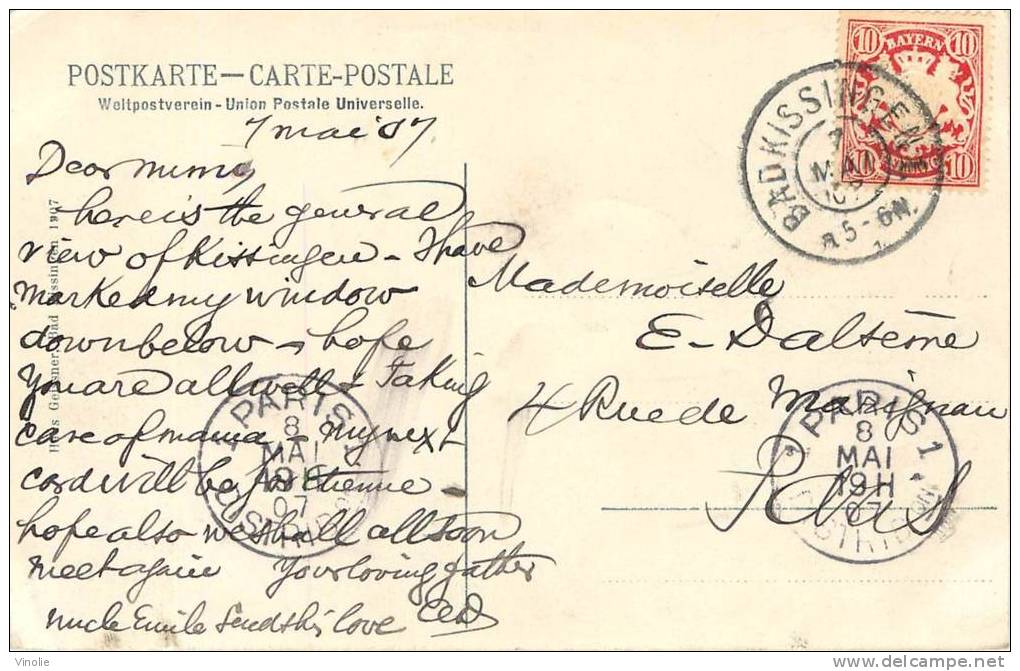 POSTKARTE—CARTE-POSTALE
Weltpostverein - Union Postale Universelle.
7 mai 07
Dear mimy
here is the general
view of Kissingen - I have
marked my window
down below - hope
you are all well & taking
care of mama - my next
card will be for Etienne -
hope also we shall all soon
meet again Your loving father
uncle Emile sends his love
BAYERN
10 10
10 10
BAD KISSINGEN
MAI
5-6N.
Mademoiselle
E. Dalsème
4 Rue de Marignan
Paris
PARIS 1
8
MAI
19H
07
DISTRIBUTION
PARIS 1
8
MAI
19H
07
DISTRIBUTION
Bad Kissingen 1907
Vinolie
www.delcampe.net